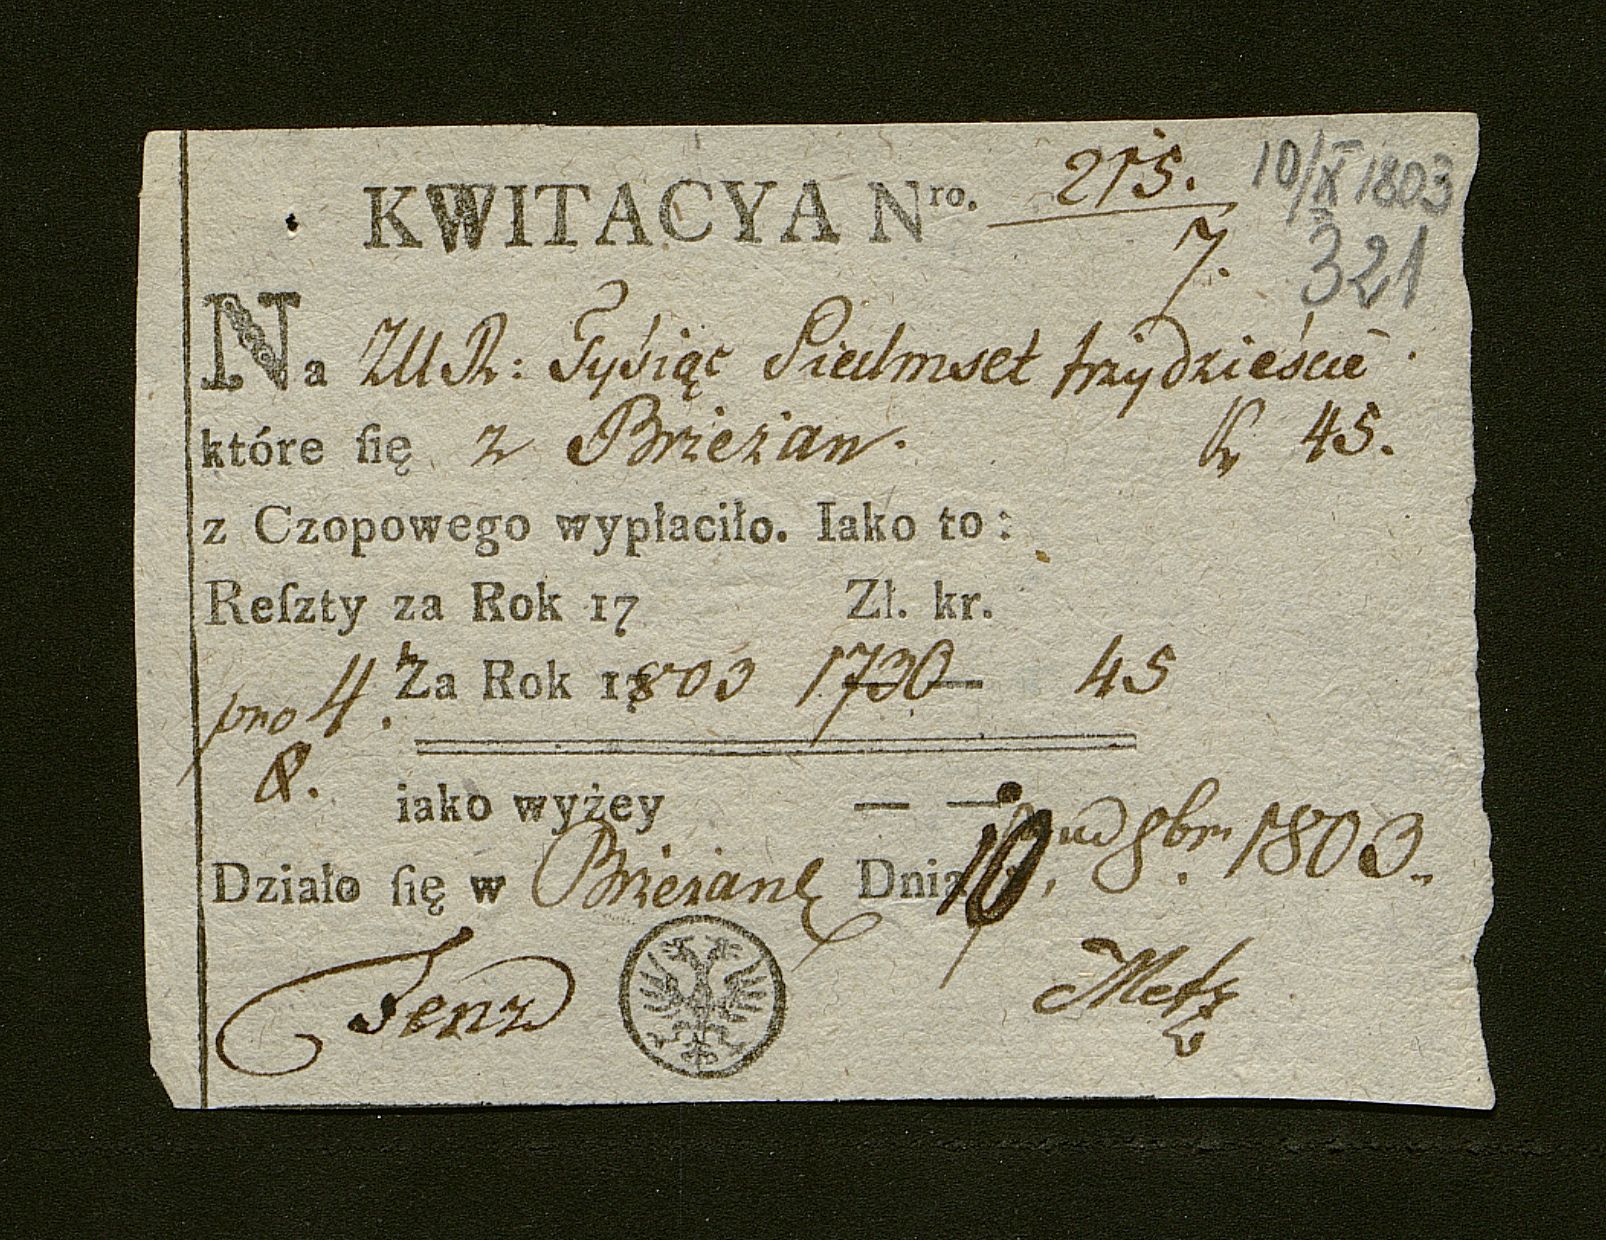 KWITACYA Nro. 215.
7.
10/X 1803
321
Na ZłR: Tysiąc Siedmset trzydzieście
które ſię z Brzeżan. kr 45.
z Czopowego wypłaciło. Iako to:
Reſzty za Rok 17 Zł. kr.
pro 4. Za Rok 1803 1730 — 45
8.
iako wyżey — —
Działo ſię w Brzeżanę Dnia 10 8br. 1803.
Metz